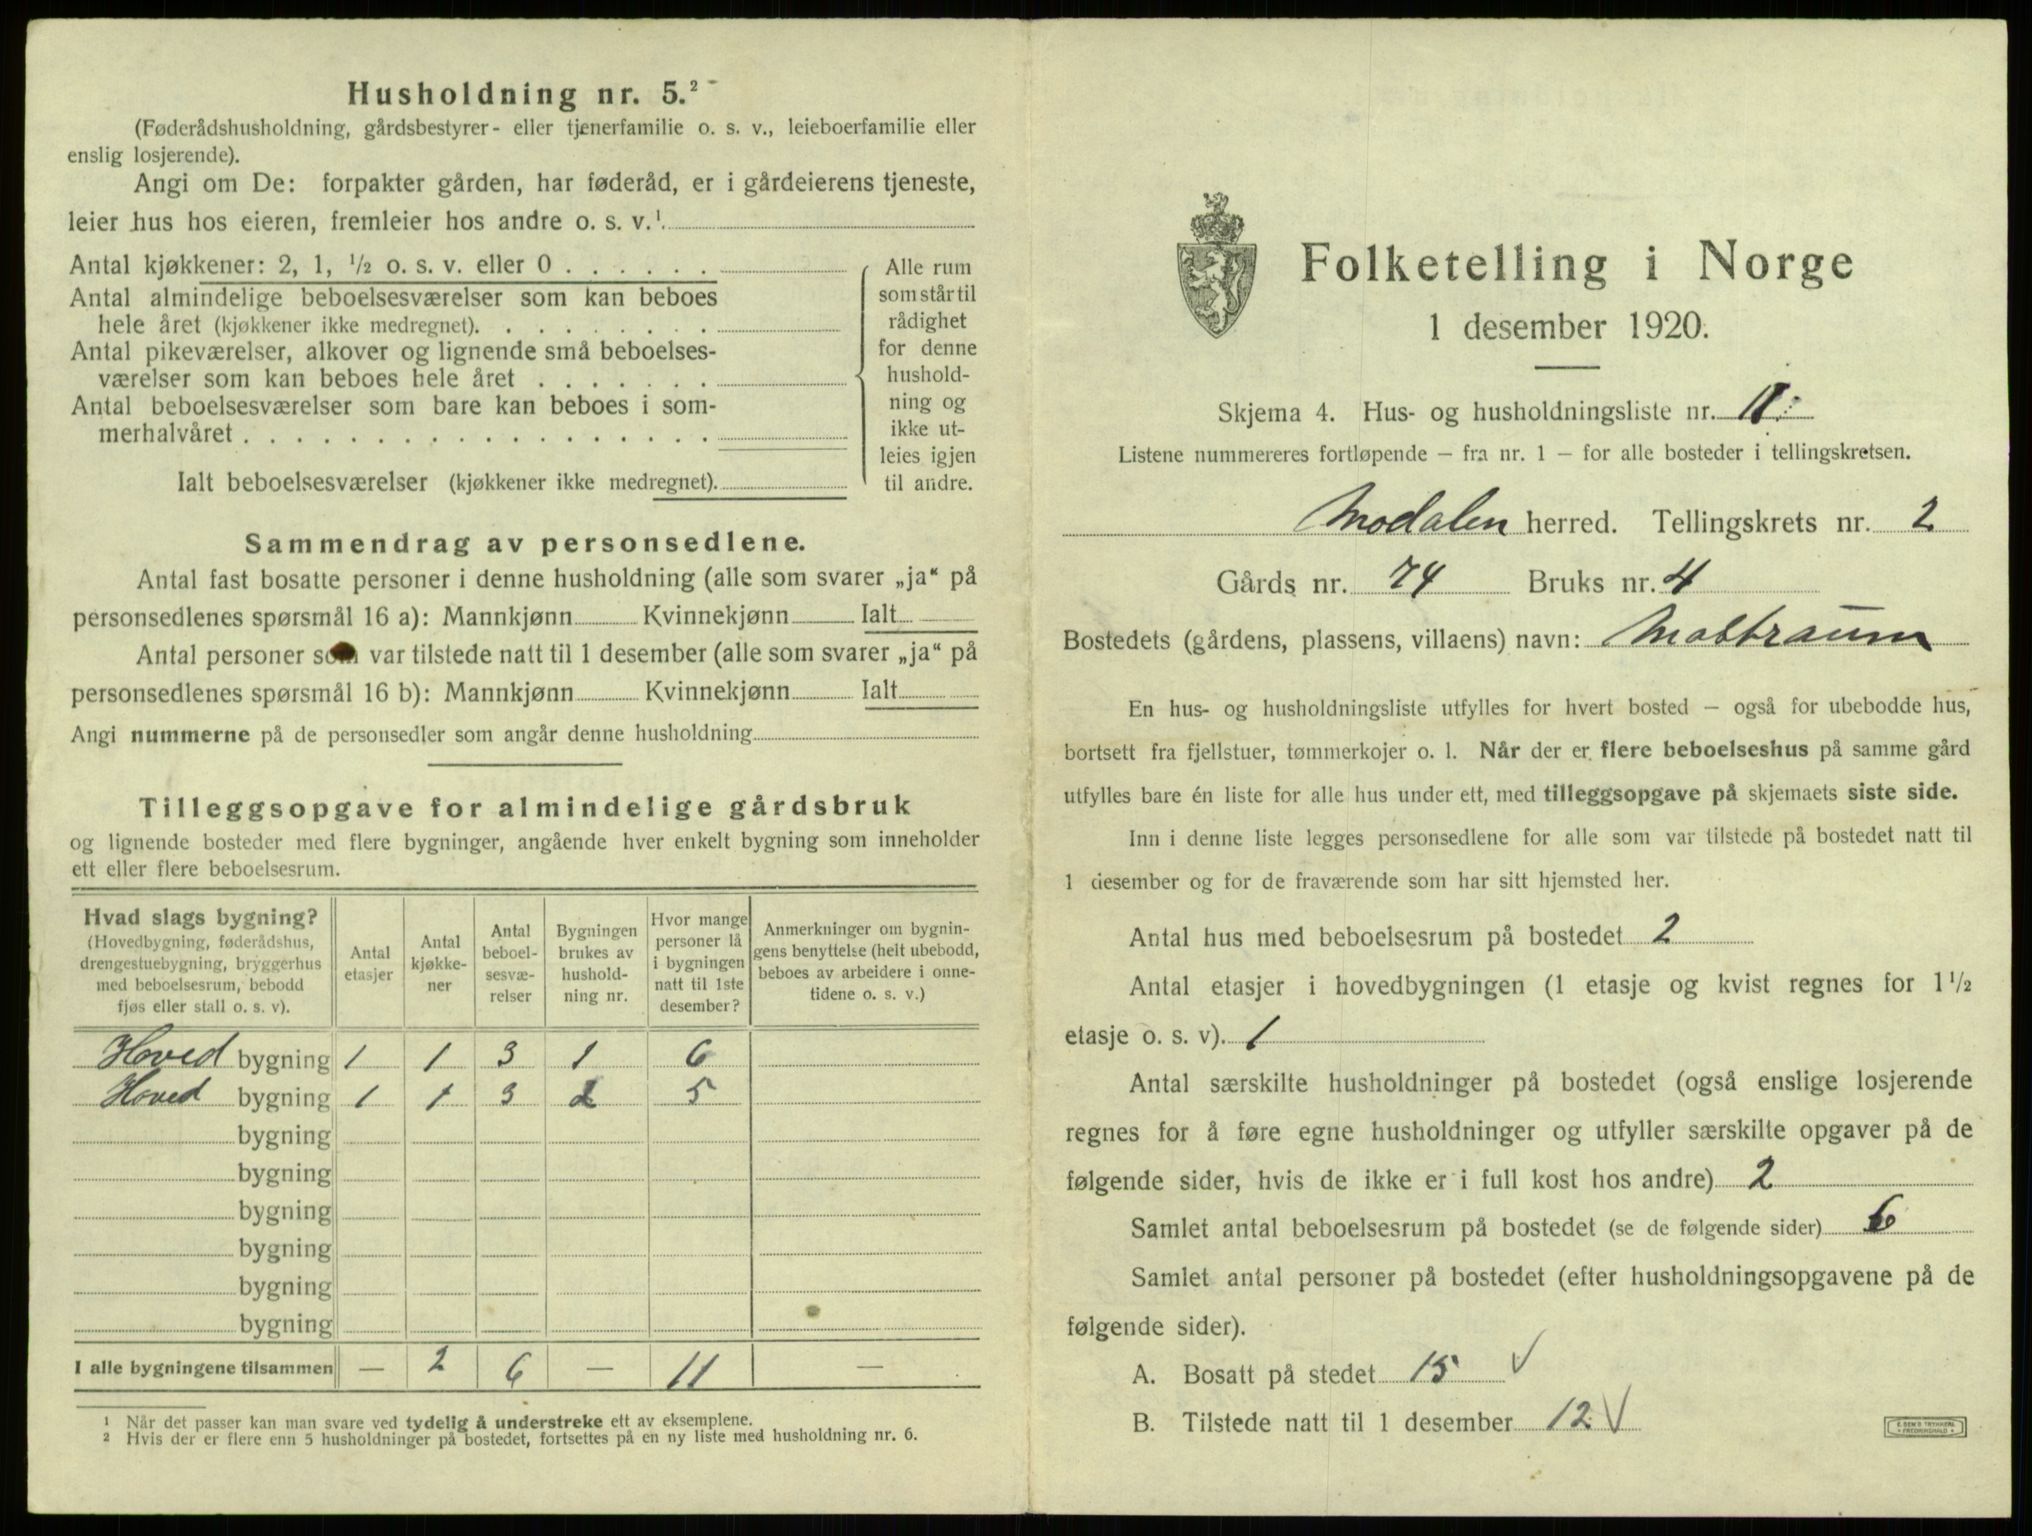 Husholdning nr. 5.²
(Føderådshusholdning, gårdsbestyrer- eller tjenerfamilie o. s. v., leieboerfamilie eller
enslig losjerende).
Angi om De: forpakter gården, har føderåd, er i gårdeierens tjeneste,
leier hus hos eieren, fremleier hos andre o. s. v.¹
Antal kjøkkener: 2, 1, ½ o. s. v. eller 0
Antal almindelige beboelsesværelser som kan beboes
hele året (kjøkkener ikke medregnet).
Antal pikeværelser, alkover og lignende små beboelses-
værelser som kan beboes hele året
Antal beboelsesværelser som bare kan beboes i som-
merhalvåret
Ialt beboelsesværelser (kjøkkener ikke medregnet).
Alle rum
som står til
rådighet
for denne
hushold-
ning og
ikke ut-
leies igjen
til andre.
Sammendrag av personsedlene.
Antal fast bosatte personer i denne husholdning (alle som svarer „ja“ på
personsedlenes spørsmål 16 a): Mannkjønn Kvinnekjønn Ialt
Antal personer som var tilstede natt til 1 desember (alle som svarer „ja“ på
personsedlenes spørsmål 16 b): Mannkjønn Kvinnekjønn Ialt
Angi nummerne på de personsedler som angår denne husholdning
Tilleggsopgave for almindelige gårdsbruk
og lignende bosteder med flere bygninger, angående hver enkelt bygning som inneholder
ett eller flere beboelsesrum.
Hvad slags bygning?
(Hovedbygning, føderådshus,
drengestuebygning, bryggerhus
med beboelsesrum, bebodd
fjøs eller stall o. s. v).
Antal
etasjer
Antal
kjøkke-
ner
Antal
beboel-
sesvæ-
relser
Bygningen
brukes av
hushold-
ning nr.
Hvor mange
personer lå
i bygningen
natt til 1ste
desember?
Anmerkninger om bygnin-
gens benyttelse (helt ubebodd,
beboes av arbeidere i onne-
tidene o. s. v.)
Hoved bygning 1 1 3 1 6
Hoved bygning 1 1 3 2 5
bygning
bygning
bygning
bygning
bygning
bygning
I alle bygningene tilsammen — 2 6 — 11 —
1 Når det passer kan man svare ved tydelig å understreke ett av eksemplene.
2 Hvis der er flere enn 5 husholdninger på bostedet, fortsettes på en ny liste med husholdning nr. 6.
Folketelling i Norge
1 desember 1920.
Skjema 4. Hus- og husholdningsliste nr. 11.
Listene nummereres fortløpende — fra nr. 1 — for alle bosteder i tellingskretsen.
Modalen herred. Tellingskrets nr. 2
Gårds nr. 74 Bruks nr. 4
Bostedets (gårdens, plassens, villaens) navn:
En hus- og husholdningsliste utfylles for hvert bosted — også for ubebodde hus,
bortsett fra fjellstuer, tømmerkojer o. l. Når der er flere beboelseshus på samme gård
utfylles bare én liste for alle hus under ett, med tilleggsopgave på skjemaets siste side.
Inn i denne liste legges personsedlene for alle som var tilstede på bostedet natt til
1 desember og for de fraværende som har sitt hjemsted her.
Antal hus med beboelsesrum på bostedet 2
Antal etasjer i hovedbygningen (1 etasje og kvist regnes for 1½
etasje o. s. v). 1
Antal særskilte husholdninger på bostedet (også enslige losjerende
regnes for å føre egne husholdninger og utfyller særskilte opgaver på de
følgende sider, hvis de ikke er i full kost hos andre) 2
Samlet antal beboelsesrum på bostedet (se de følgende sider) 6
Samlet antal personer på bostedet (efter husholdningsopgavene på de
følgende sider).
A. Bosatt på stedet 15 √
B. Tilstede natt til 1 desember 12 √